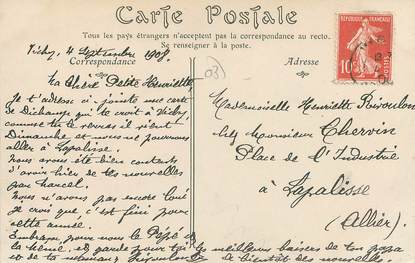 Carte Postale
Tous les pays étrangers n'acceptent pas la correspondance au recto.
Se renseigner à la poste.
Correspondance
Adresse
RÉPUBLIQUE FRANÇAISE
10
03
Vichy, 4 Septembre 1908
Ma Chère Petite Henriette,
Je t'adresse ci jointe une carte
de Dichange qui te croit à Vichy,
comme tu le verras il vient
Dimanche et nous ne pourrons
aller à Lapalisse.
Nous avons été bien contents
d'avoir hier de tes nouvelles
par Marcel.
Nous n'avons pas encore loué
je crois que c'est fini pour
cette année.
Embrasse pour nous le Pépé et
la Mémé, et garde pour toi les meilleurs baisers de ton papa
et de ta maman
à bientôt des nouvelles.
Mademoiselle Henriette
chez Monsieur Chervin
Place de l'Industrie
à Lapalisse
(Allier)